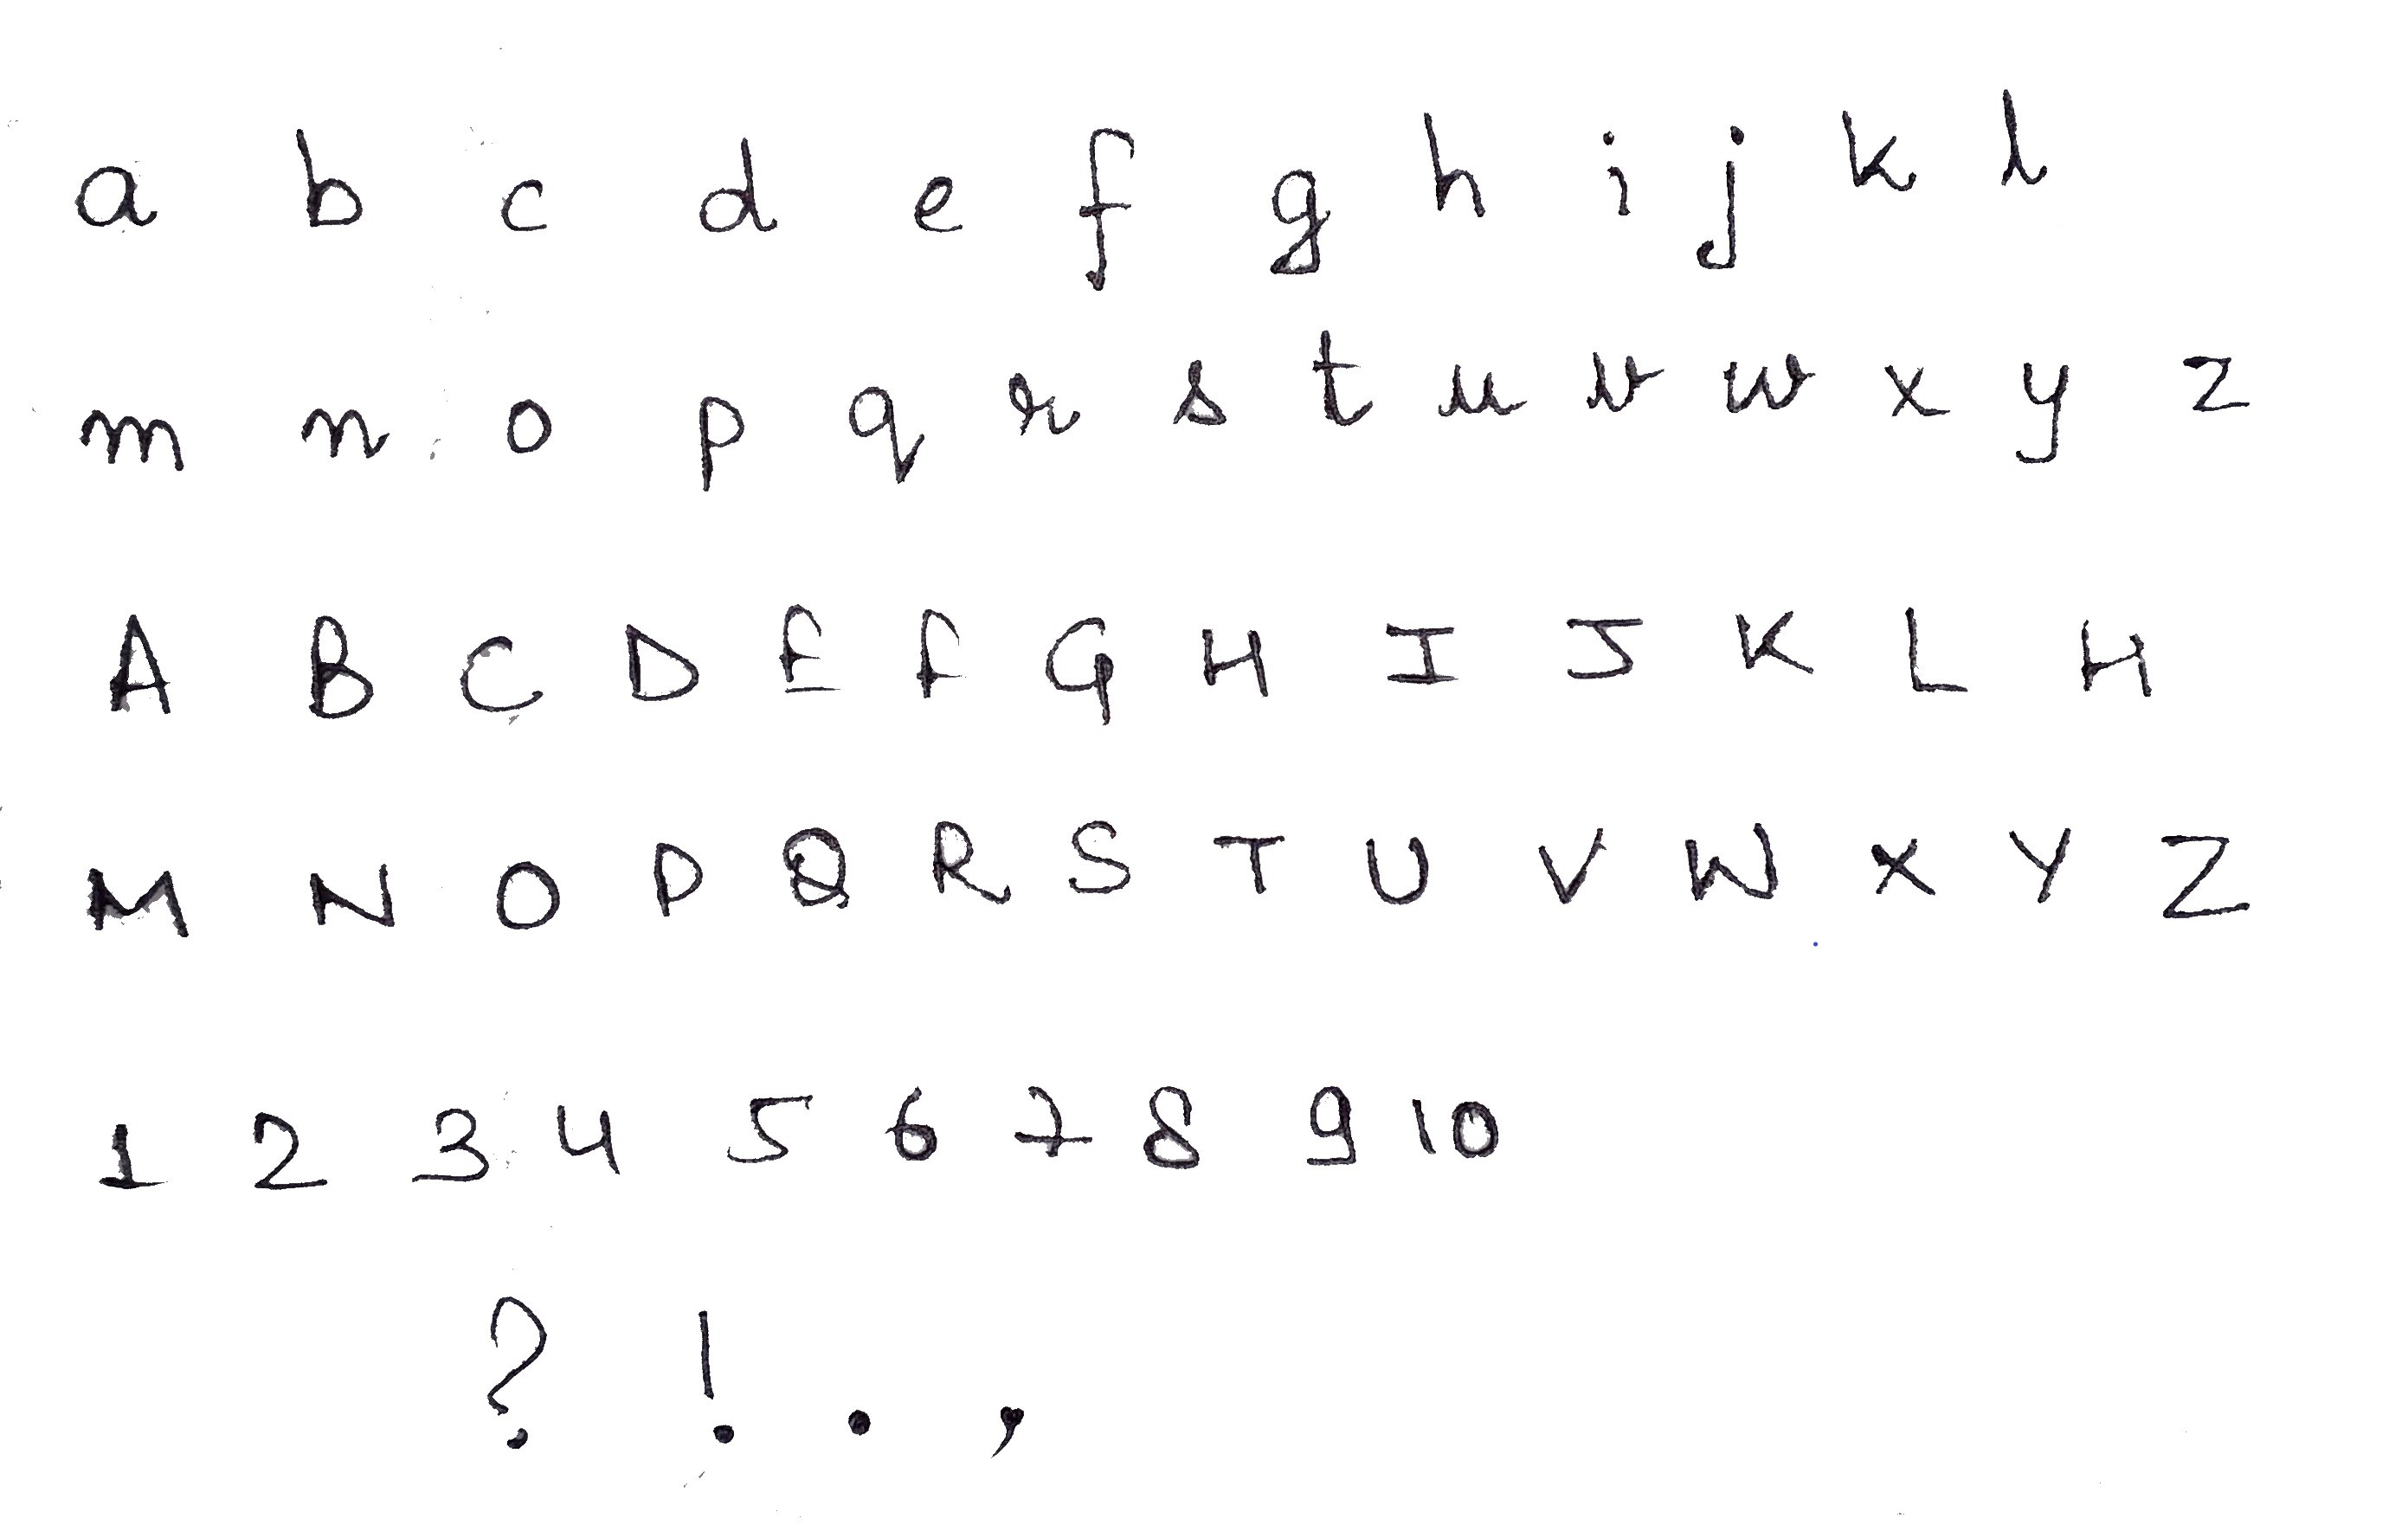 a b c d e f g h i j k l
m n o p q r s t u v w x y z
A B C D E F G H I J K L H
M N O P Q R S T U V W X Y Z
1 2 3 4 5 6 7 8 9 10
? ! . ,